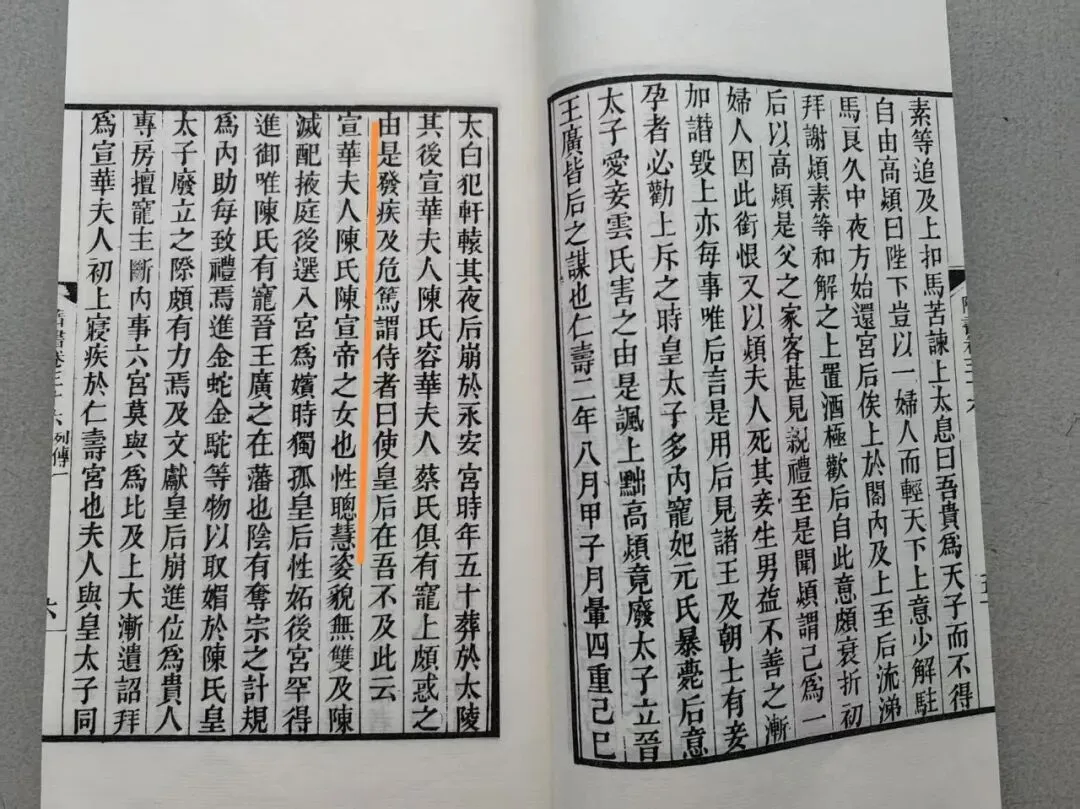 素等追及上扣馬苦諫上太息曰吾貴爲天子而不得
自由高熲曰陛下豈以一婦人而輕天下上意少解駐
馬良久中夜方始還宮后俟上於閤內及上至后流涕
拜謝熲素等和解之上置酒極歡后自此意頗衰折初
后以高熲是父之家客甚見親禮至是聞熲謂己爲一
婦人因此銜恨又以熲夫人死其妾生男益不善之漸
加譖毀上亦每事唯后言是用后見諸王及朝士有妾
孕者必勸上斥之時皇太子多內寵妃元氏暴薨后意
太子愛妾雲氏害之由是諷上黜高熲竟廢太子立晉
王廣皆后之謀也仁壽二年八月甲子月暈四重己巳
太白犯軒轅其夜后崩於永安宮時年五十葬於太陵
其後宣華夫人陳氏容華夫人蔡氏俱有寵上頗惑之
由是發疾及危篤謂侍者曰使皇后在吾不及此云
宣華夫人陳氏陳宣帝之女也性聰慧姿貌無雙及陳
滅配掖庭後選入宮爲嬪時獨孤皇后性妬後宮罕得
進御唯陳氏有寵晉王廣之在藩也陰有奪宗之計規
爲內助每致禮焉進金蛇金駝等物以取媚於陳氏皇
太子廢立之際頗有力焉及文獻皇后崩進位爲貴人
專房擅寵主斷內事六宮莫與爲比及上大漸遺詔拜
爲宣華夫人初上寢疾於仁壽宮也夫人與皇太子同
書卷三十六 列傳一
六